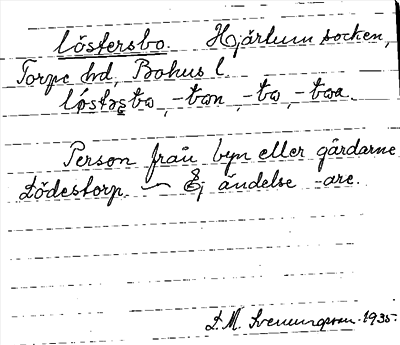 löstersbo. Hjärtum socken,
Torpe hd, Bohus l.
-bon, -bo, -boa.
Person från byn eller gårdarne
Lödestorp. — Ej ändelse -are.
D. M. Svenungsson. 1935.